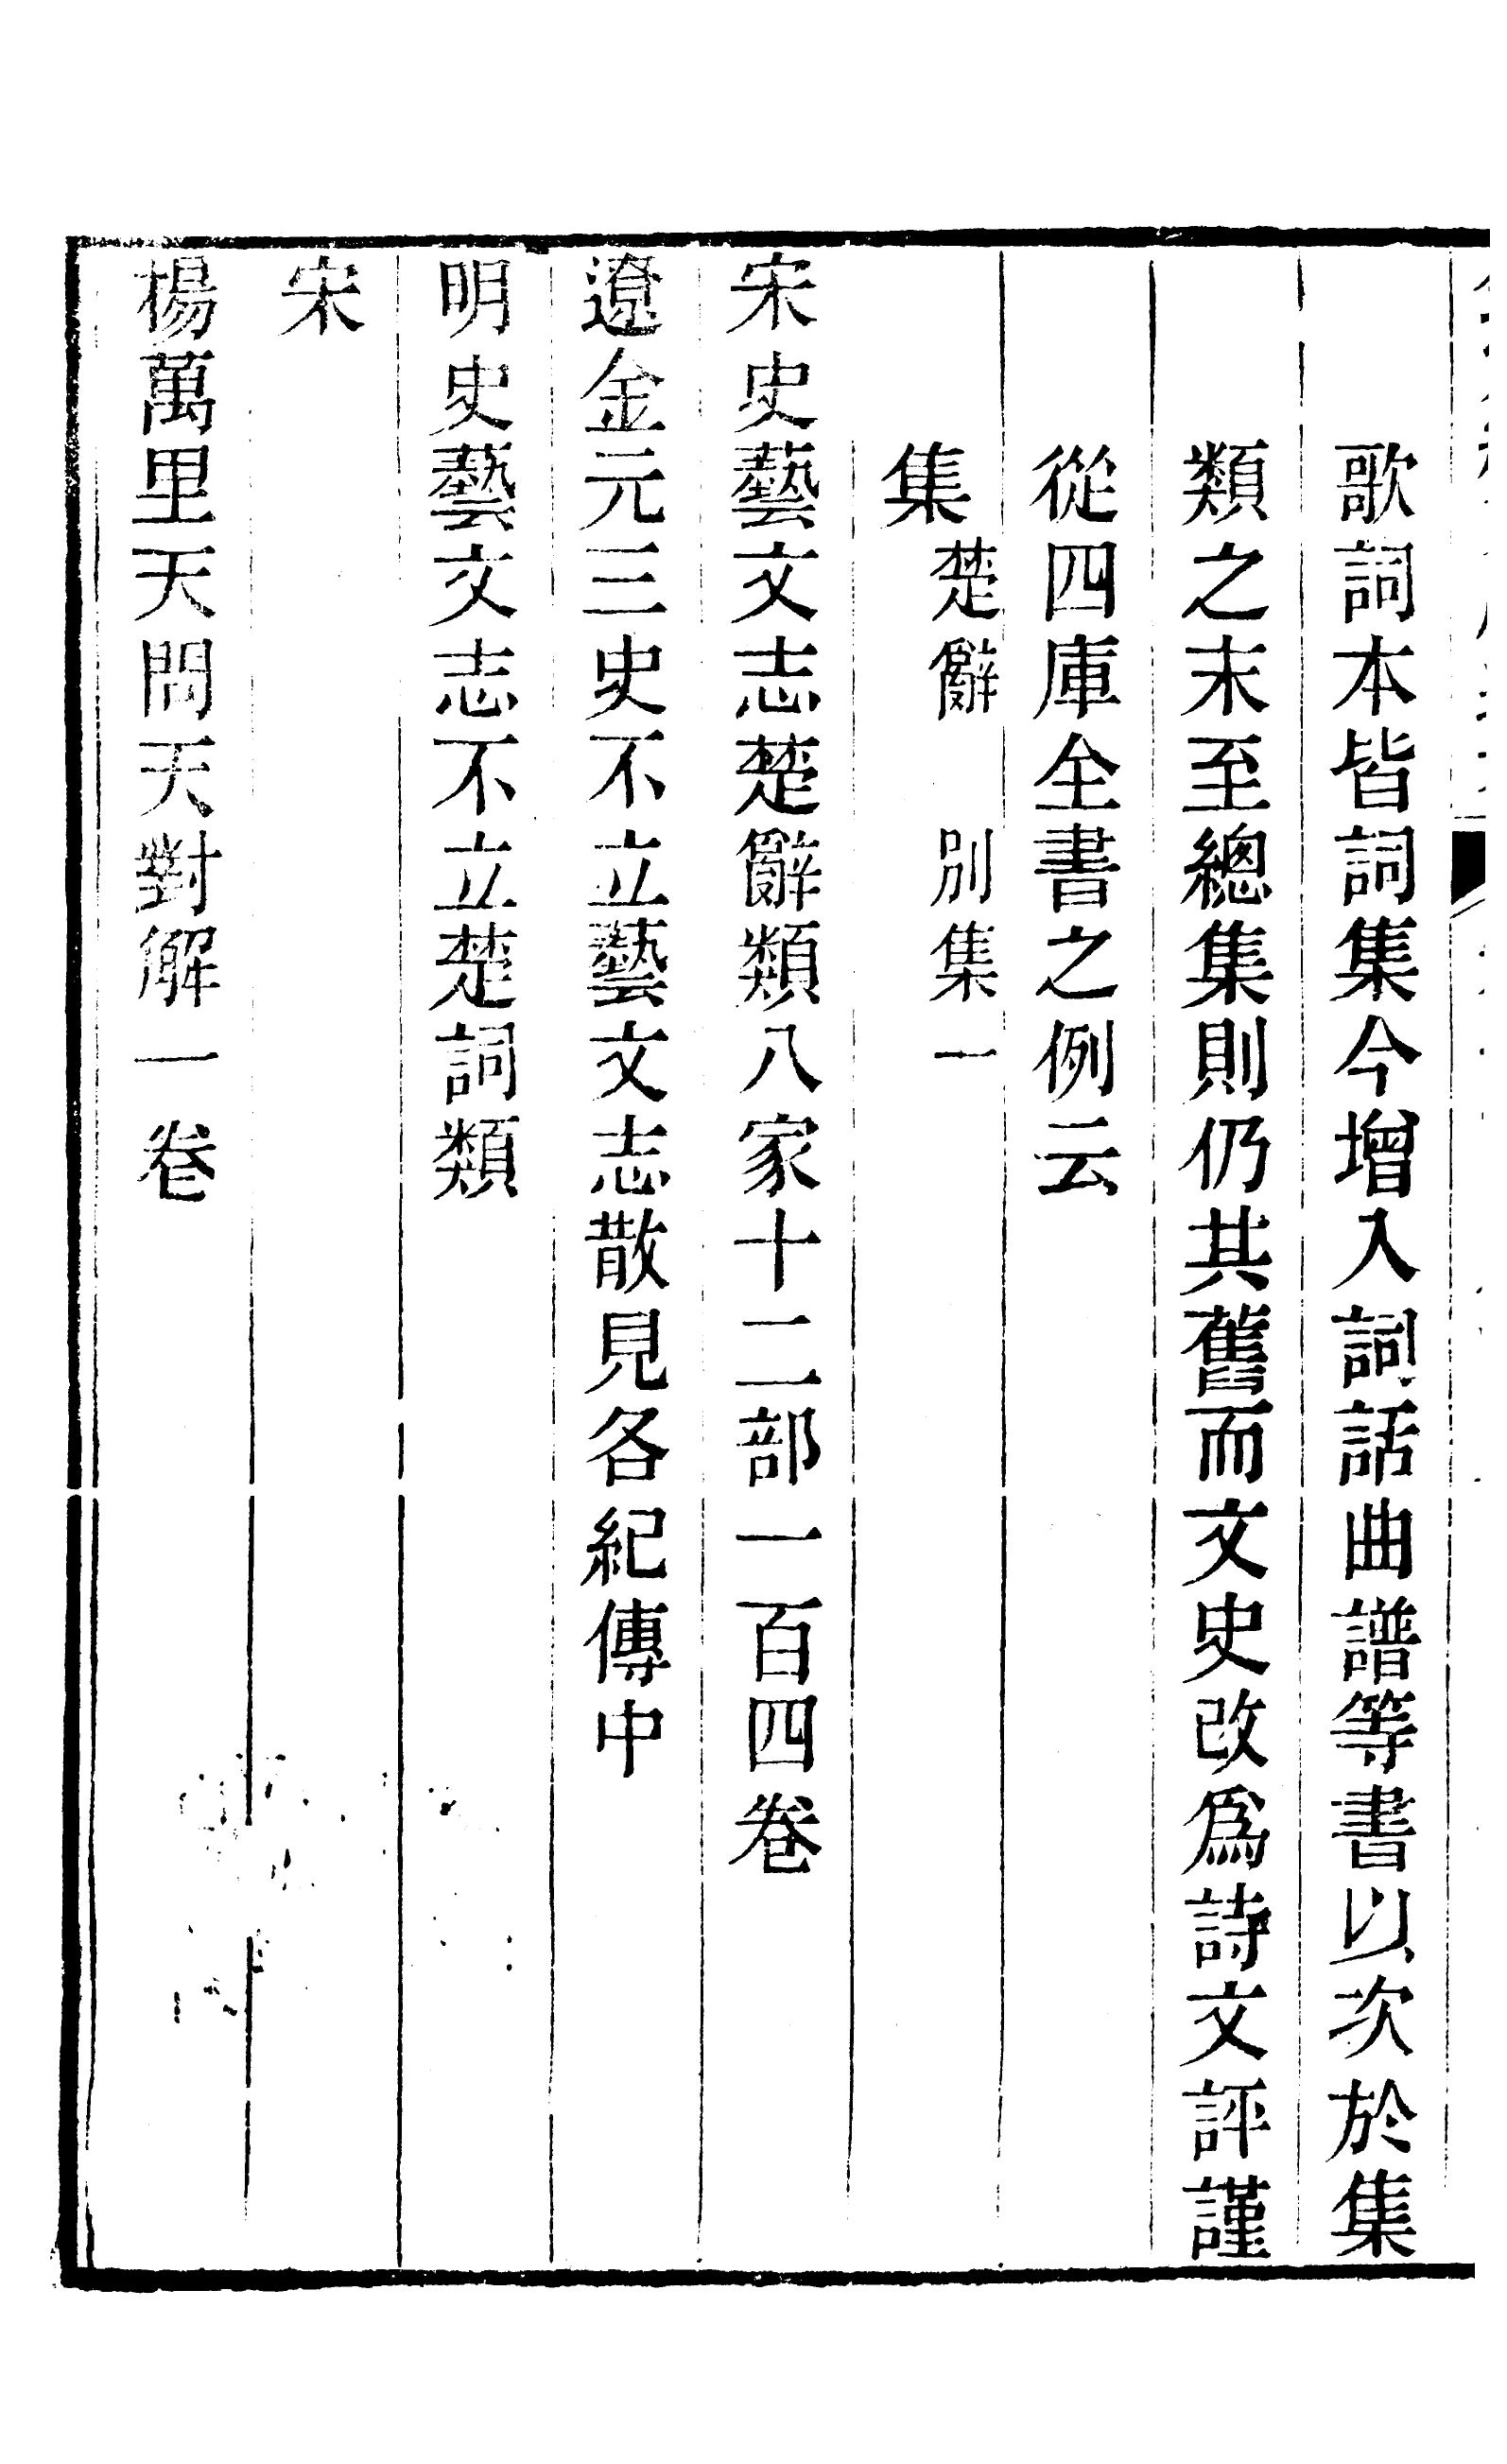 歌詞本皆詞集今增入詞話曲譜等書以次於集
類之末至總集則仍其舊而文史改爲詩文評謹
從四庫全書之例云
集楚辭　別集一
宋史藝文志楚辭類八家十二部一百四卷
遼金元三史不立藝文志散見各紀傳中
明史藝文志不立楚詞類
宋
楊萬里天問天對解一卷